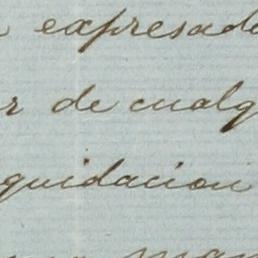 expresado
r de cualq
quidacion